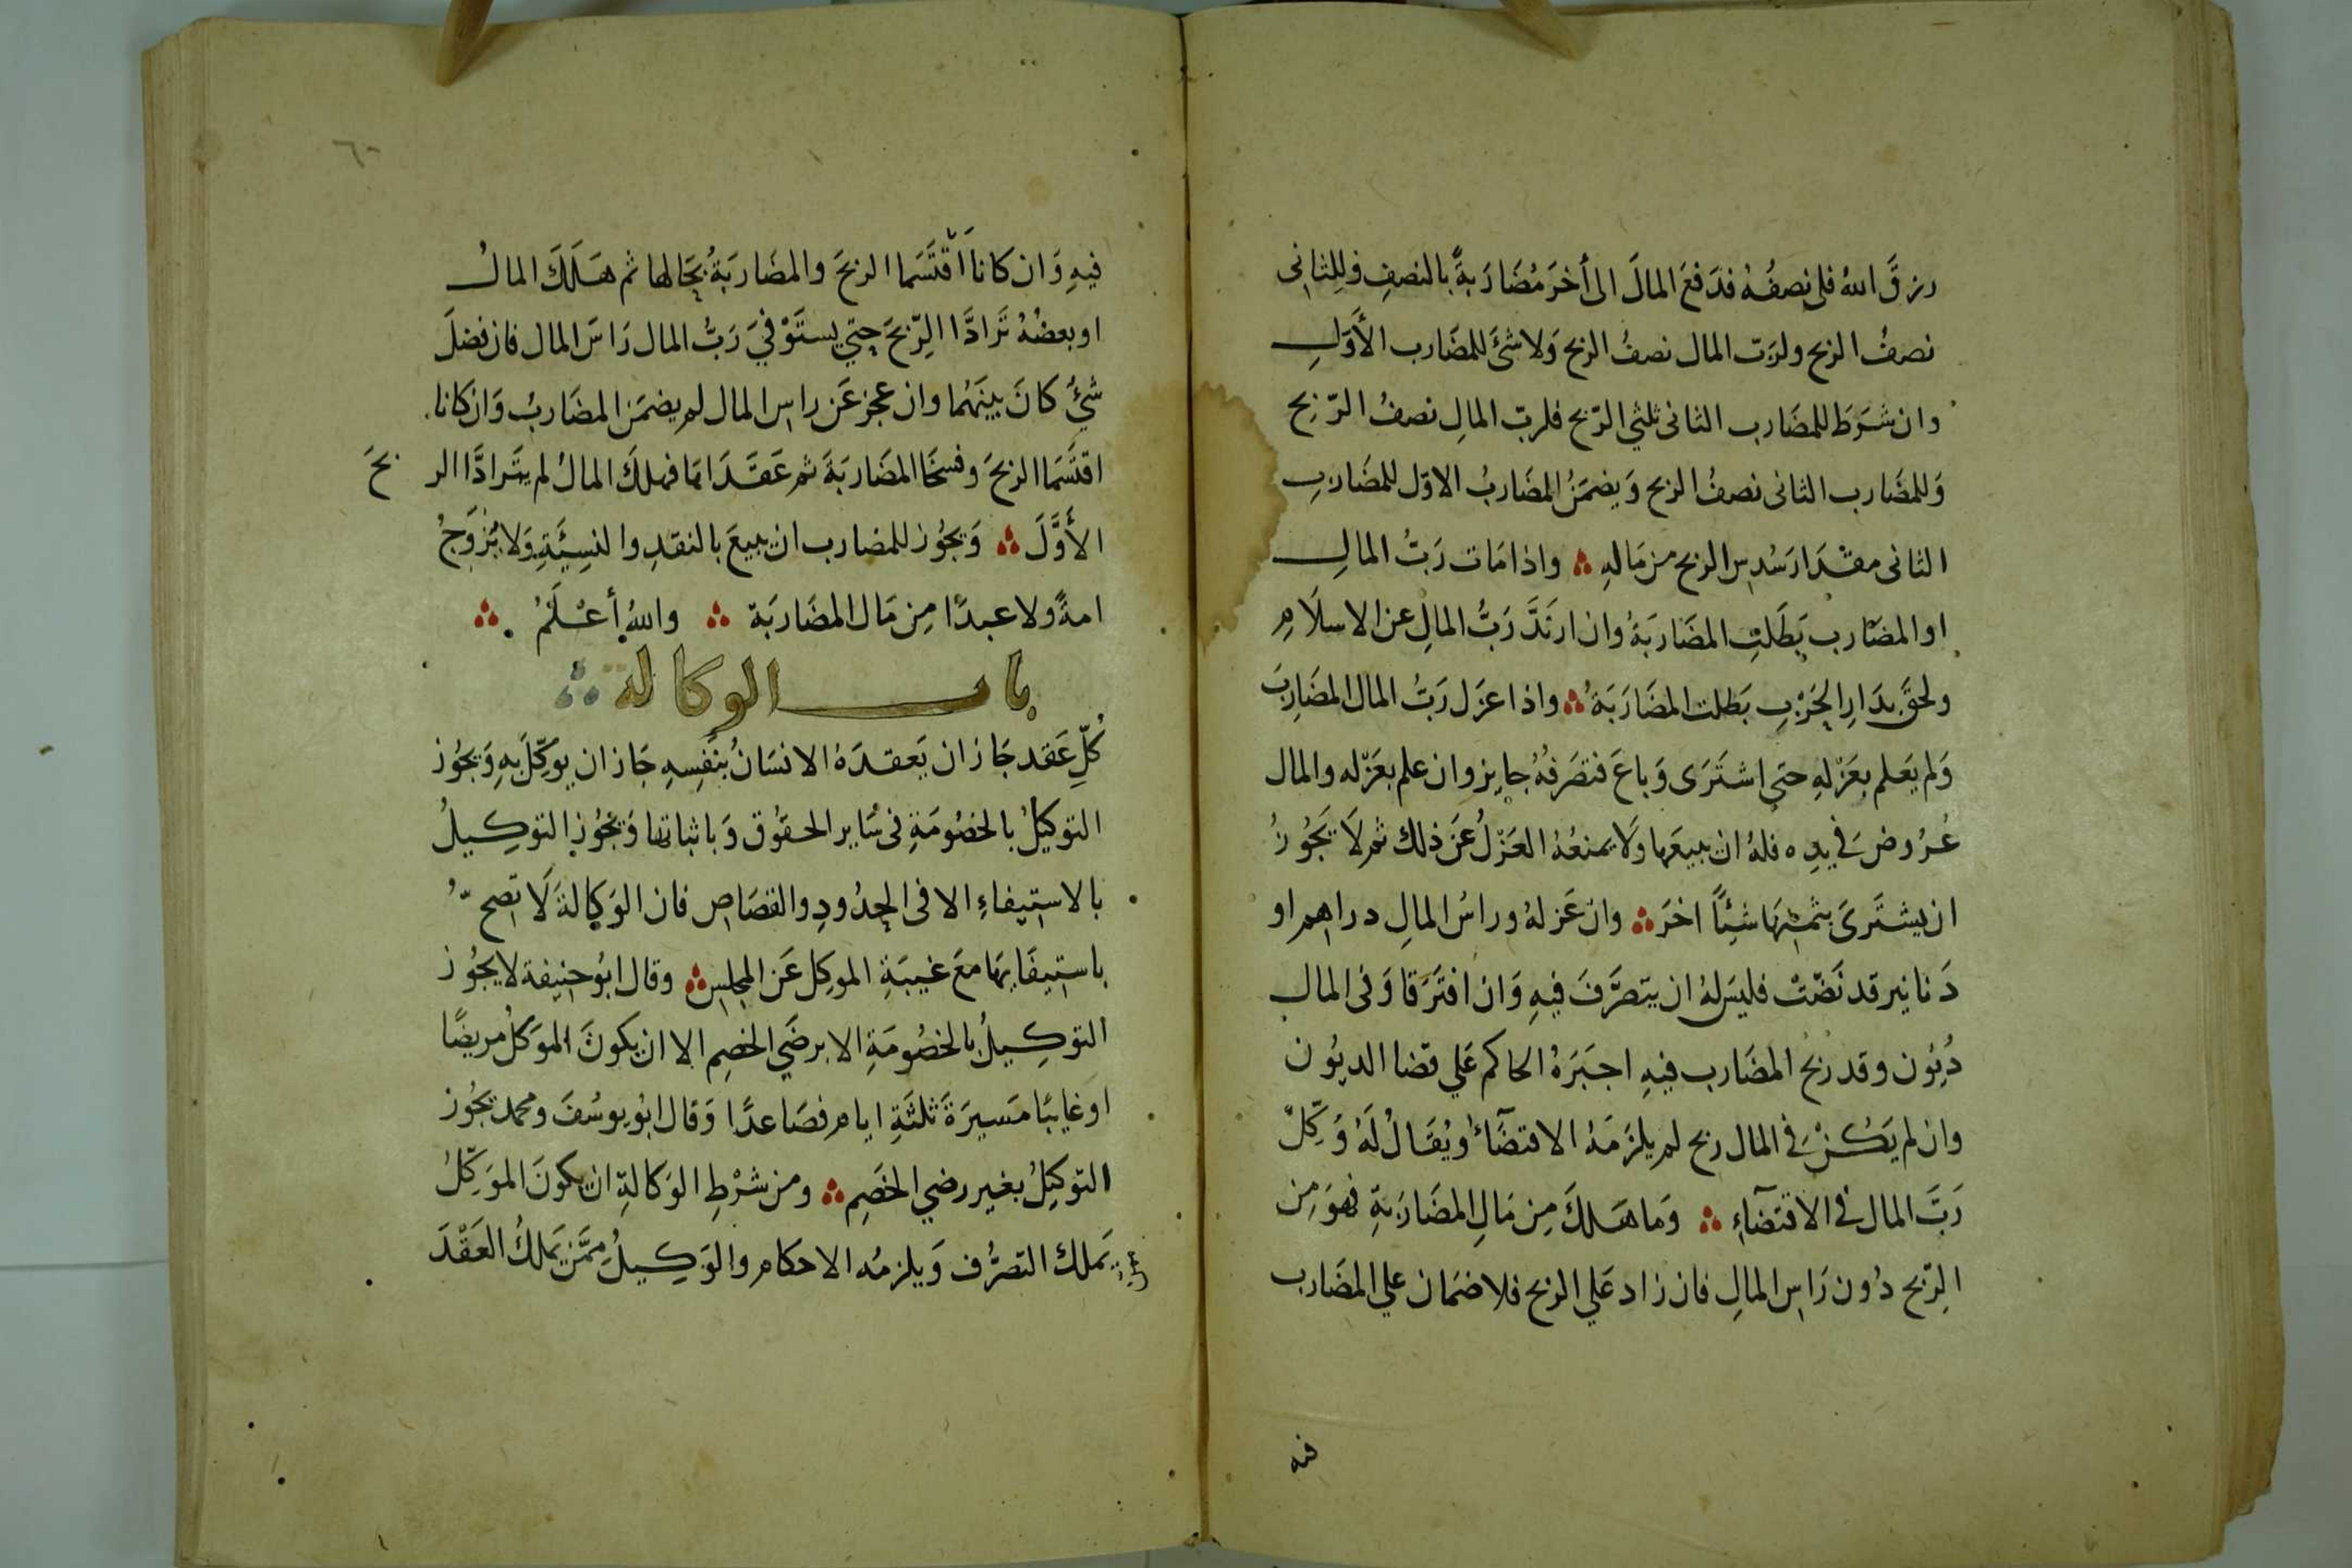 رزقَ اللهُ فلى نصفُهُ فدَفعَ المالَ الى أخرَ مُضَارَبةً بالنصفِ فللِثانِى
نصفُ الربح ولربّ المال نصفُ الربح وَلا شَئَ للمضَارب الأَوّلِ
وان شَرَطَ للمضَارب الثانى ثلثي الرّبح فلربّ المالِ نصفُ الرّبح
وَللمضَارب الثانى نصفُ الربح وَيضمَنُ المضَاربُ الاوّل للمضَاربِ
الثانى مقدَار سُدسِ الربح من مَالهِ ؞ واذا مَات رَبُّ المالِ
او المضَارب بَطَلتِ المضَاربَةُ وان ارتَدَّ رَبُّ المالِ عن الاسلَامِ
ولحقَ بدَارِ الحَرْبِ بَطلت المضَارَبَةُ ؞ واذا عزَل رَبُّ المال المضَارِبَ
وَلم يَعلم بعَزْلهِ حتى اشتَرى وَباعَ فتصَرفهُ جايز وان علم بعَزْله والمال
عُرُوضَ فى يدِه فلهُ ان يبيعَها وَلَا يمنعُهُ العَزْلُ عَن ذلك ثم لَا يَجُوزُ
ان يشتَرىَ بثمنِهَا شيئًا اخرَ ؞ وان عَزلهُ وراسُ المالِ دراهم او
دَنانير قد نَضّتْ فليسَ لهُ ان يتصَرَّفَ فيهِ وَان افتَرَقا وَفى المال
دُيُون وقد رَبحَ المضَارب فيهِ اجبَرَهُ الحاكم عَلي قضا الديُون
وان لم يَكُنْ فى المال ربح لم يلزَمَهُ الاقتضَآءُ ويُقَالُ لَهُ وَكِّلْ
رَبَّ المال فى الاقتضَآءِ ؞ وَما هَلكَ مِن مَالِ المضَارَبةِ فهوَ مِن
الرِّبح دُون رَاسِ المالِ فان زادَ عَلي الربح فلا ضمَان علي المضَارب
فيه
٦٠
فيهِ وَان كانا اَقْتَسَما الربحَ والمضَاربَةُ بحَالها ثم هَلَكَ المالُ
او بعضُهُ تَرادَّا الرِّبحَ حتي يستَوْفيَ رَبُّ المال رَاسَ المال فان فضلَ
شئٌ كانَ بينَهُما وان عجز عَن راس المال لم يضمَن المضَاربُ وَان كانا
اقتَسَما الربحَ وفسخَا المضَاربَةَ ثم عَقَدَاها فهلكَ المالُ لم يتَرادَّا الربحَ
الأَوَّلَ ؞ وَيجُوز للمضارب ان يبيعَ بالنقدِ والنسِيئَةِ وَلا يُزوّجُ
امةً ولا عبدًا مِن مَال المضَاربَة ؞ واللهُ أعْلَمُ ؞
باب الوكالة ؞
كُلّ عَقد جَاز ان يَعقدَهُ الانسَانُ بنَفِسهِ جَاز ان يوكّلَ بهِ وَيجُوز
التوكيلُ بالخصُومَةِ فى سَايرِ الحقوُق وَباثباتها وَيجُوز التوكيلُ
بالاستيفاءِ الا فى الحدُودِ والقصَاص فان الوَكالةَ لَا تصحُّ
باستيفَايهَا معَ غيبَةِ الموكل عَن المجلس ؞ وقال ابُو حنيفة لا يجُوز
التوكيلُ بالخصُومَةِ الا برضَي الخصِم الا ان يكونَ الموَكلُ مريضًا
او غايبًا مَسيرَةَ ثلثَةِ ايام فصَاعدًا وَقال ابُو يوسُفَ ومحمد يجُوز
التوكيِلُ بغير رضي الخَصِم ؞ ومن شَرْطِ الوَكالةِ ان يكونَ الموَكِّلُ
يَملك التصرُّف وَيلزمُه الاحكام والوَكِيلُ مِمَّن يَملكُ العَقْدَ